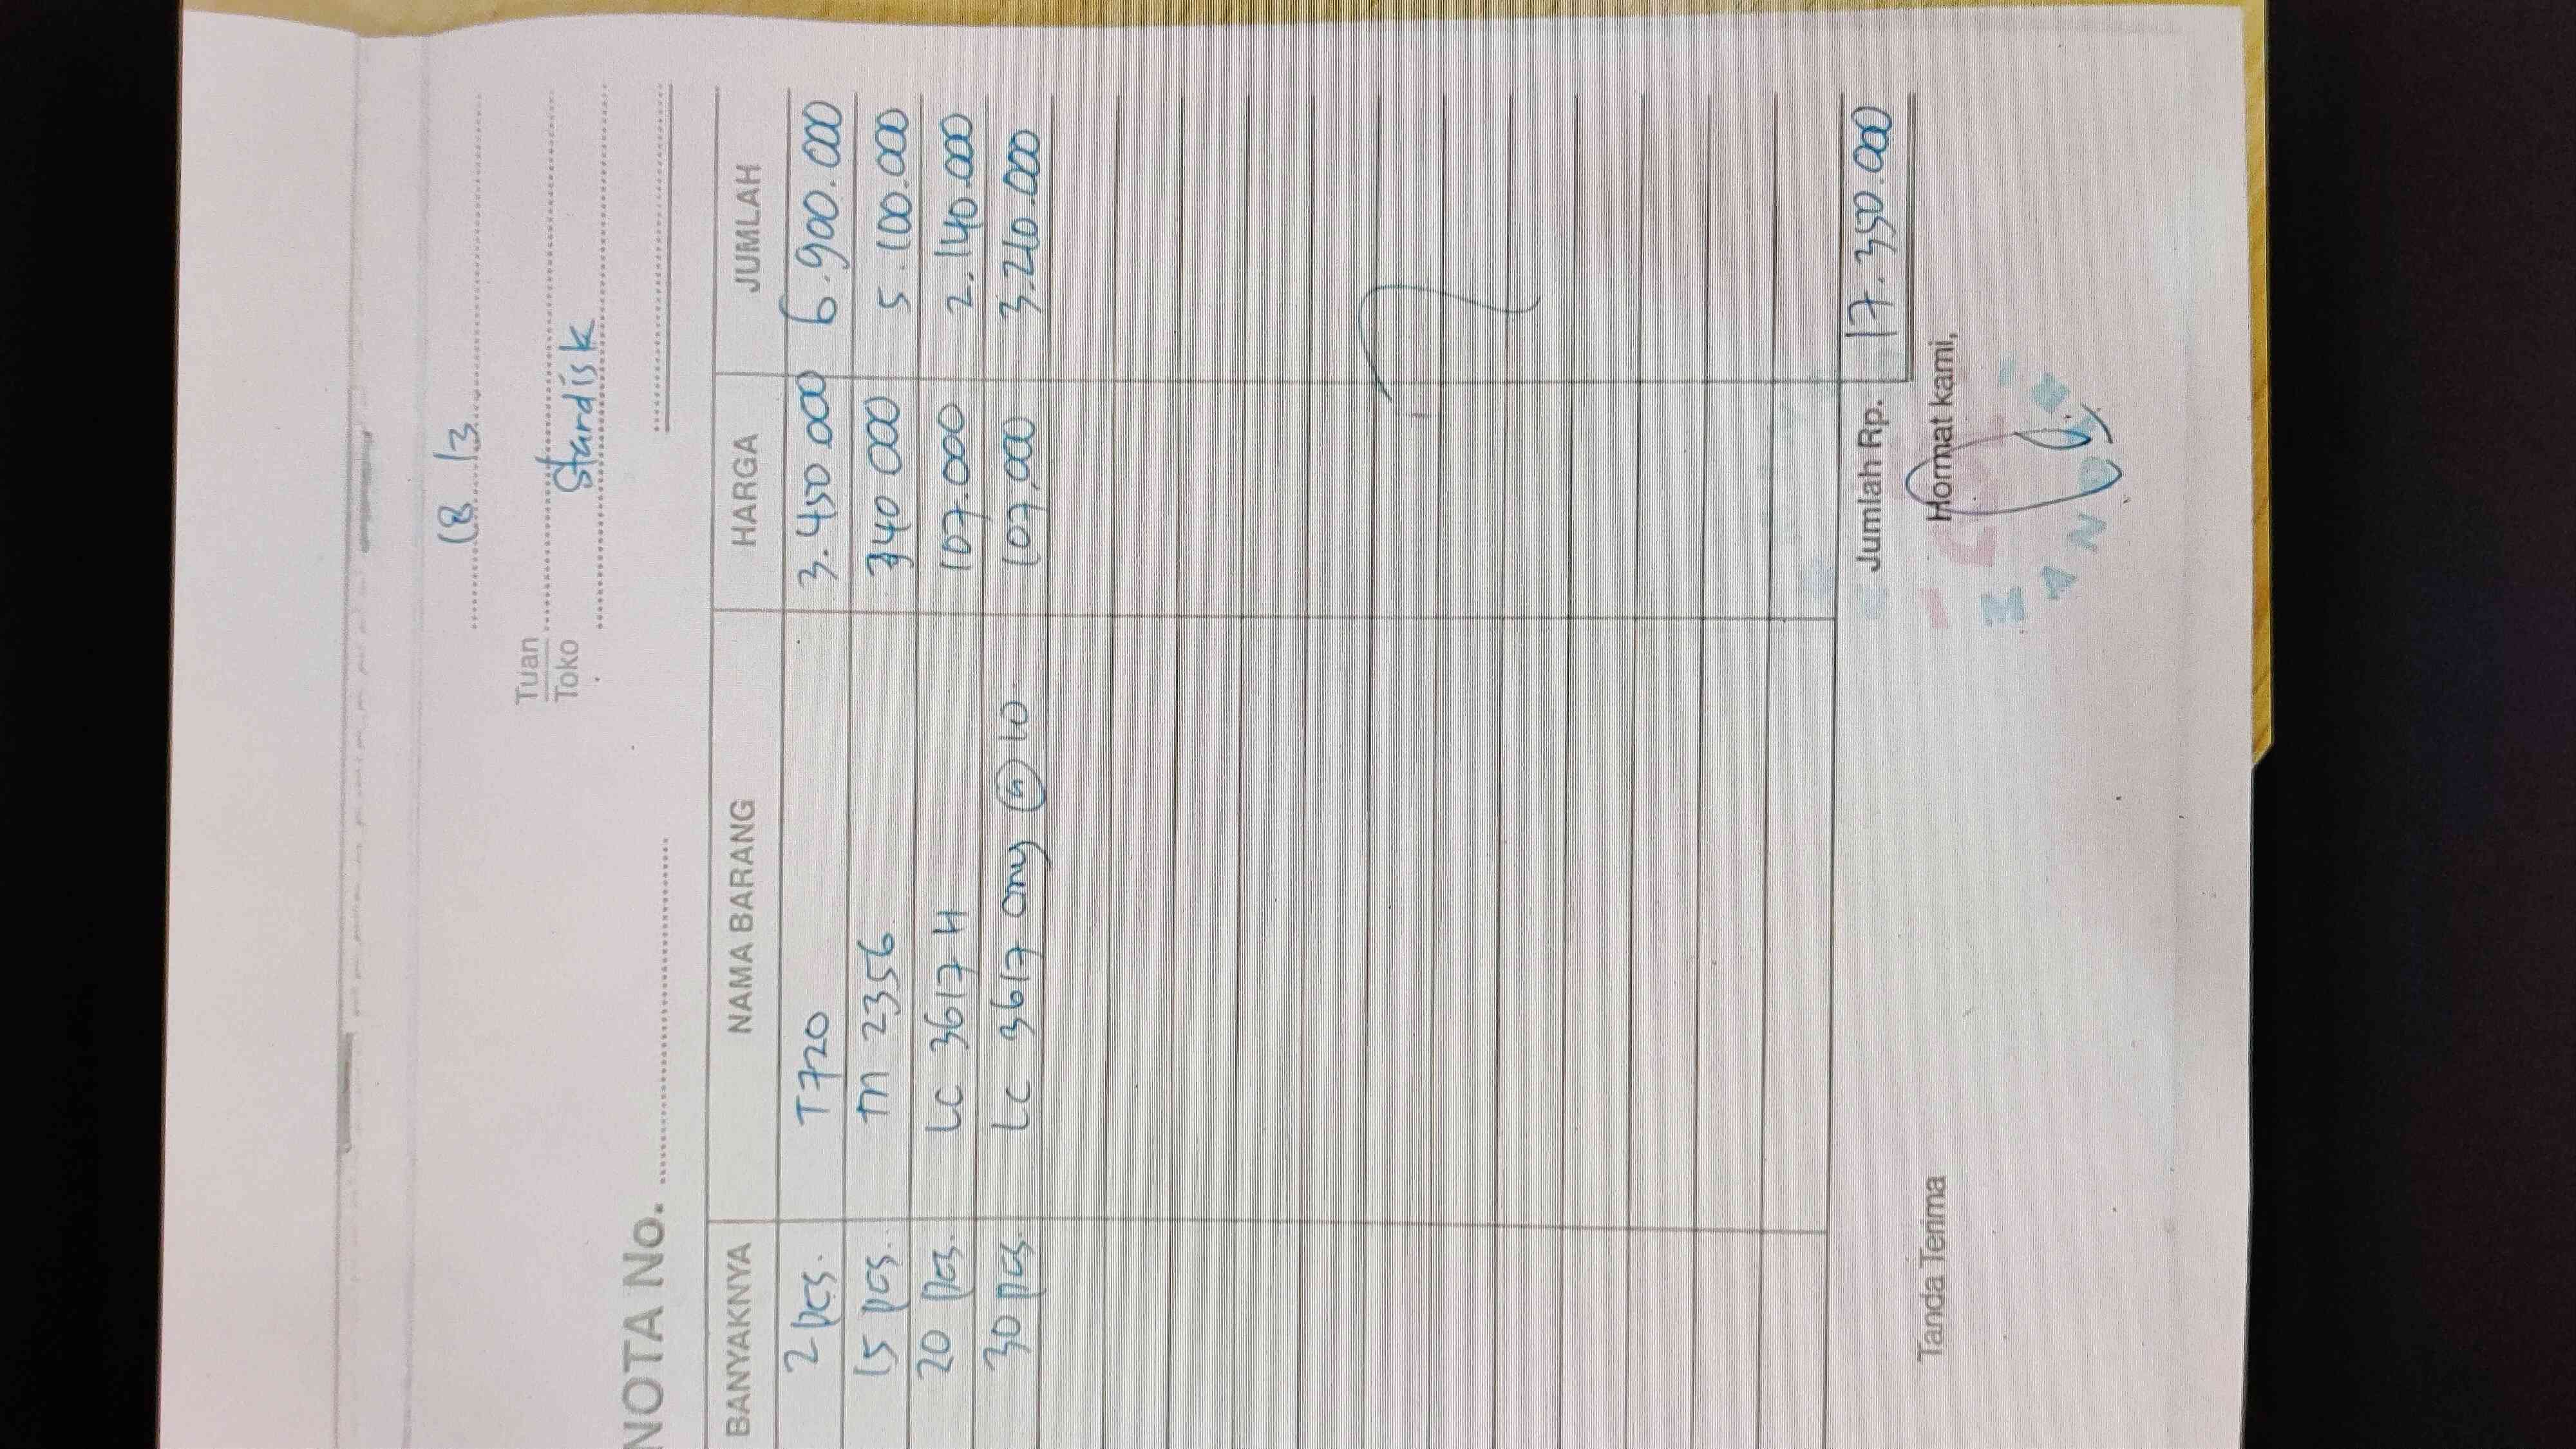 18/3
Tuan
Toko
Stardisk
NOTA No.
BANYAKNYA NAMA BARANG HARGA JUMLAH
2 pcs. T720 3.450.000 6.900.000
15 pcs. TN 2356 340 000 5.100.000
20 pcs. LC 3617 H 107.000 2.140.000
30 pcs. LC 3617 cmy @ 10 107.000 3.210.000
Jumlah Rp. 17.350.000
Tanda Terima Hormat kami,